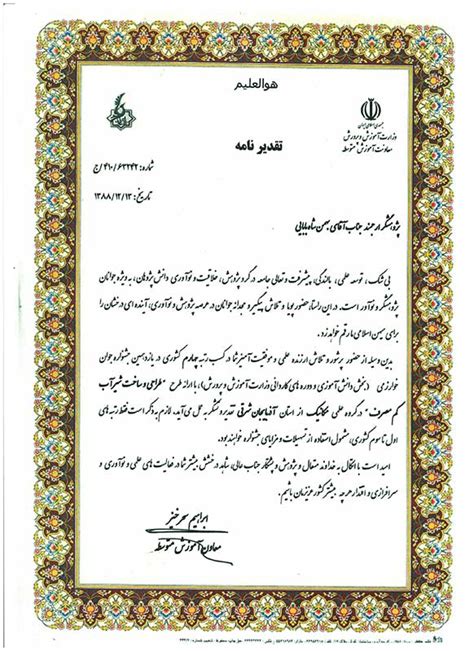 هوالعلیم
جمهوری اسلامی ایران
وزارت آموزش و پرورش
معاونت آموزش متوسطه
تقدیر نامه
شماره: ۴۱۰/۶۳۲۴۲/ج
تاریخ: ۱۳۸۸/۱۲/۱۳
پژوهشگر ارجمند جناب آقای بهمن شاه بابایی
بی شک، توسعه علمی، بالندگی، پیشرفت و تعالی جامعه در گرو پژوهش، خلاقیت و نوآوری دانش پژوهان، به ویژه جوانان
پژوهشگر و نوآور است. در این راستا، حضور پویا و تلاش پیگیر و مجدانه جوانان در عرصه پژوهش و نوآوری، آینده ای درخشان را
برای میهن اسلامی ما رقم خواهد زد.
بدین وسیله از حضور پرشور و تلاش ارزنده علمی و موفقیت آمیز شما در کسب رتبه چهارم کشوری در یازدهمین جشنواره جوان
خوارزمی (بخش دانش آموزی و دوره های کاردانی وزارت آموزش و پرورش)، با ارائه طرح «طراحی و ساخت شیر آب
کم مصرف» در گروه علمی مکانیک از استان آذربایجان شرقی تقدیر و تشکر به عمل می آید. لازم به ذکر است فقط رتبه های
اول تا سوم کشوری، مشمول استفاده از تسهیلات و مزایای جشنواره خواهند بود.
امید است با اتکال به خداوند متعال و پژوهش و پشتکار جناب عالی، شاهد درخشش بیشتر شما در فعالیت های علمی و نوآوری و
سرافرازی و اقتدار هرچه بیشتر کشور عزیزمان باشیم.
ابراهیم سحرخیز
معاون آموزش متوسطه